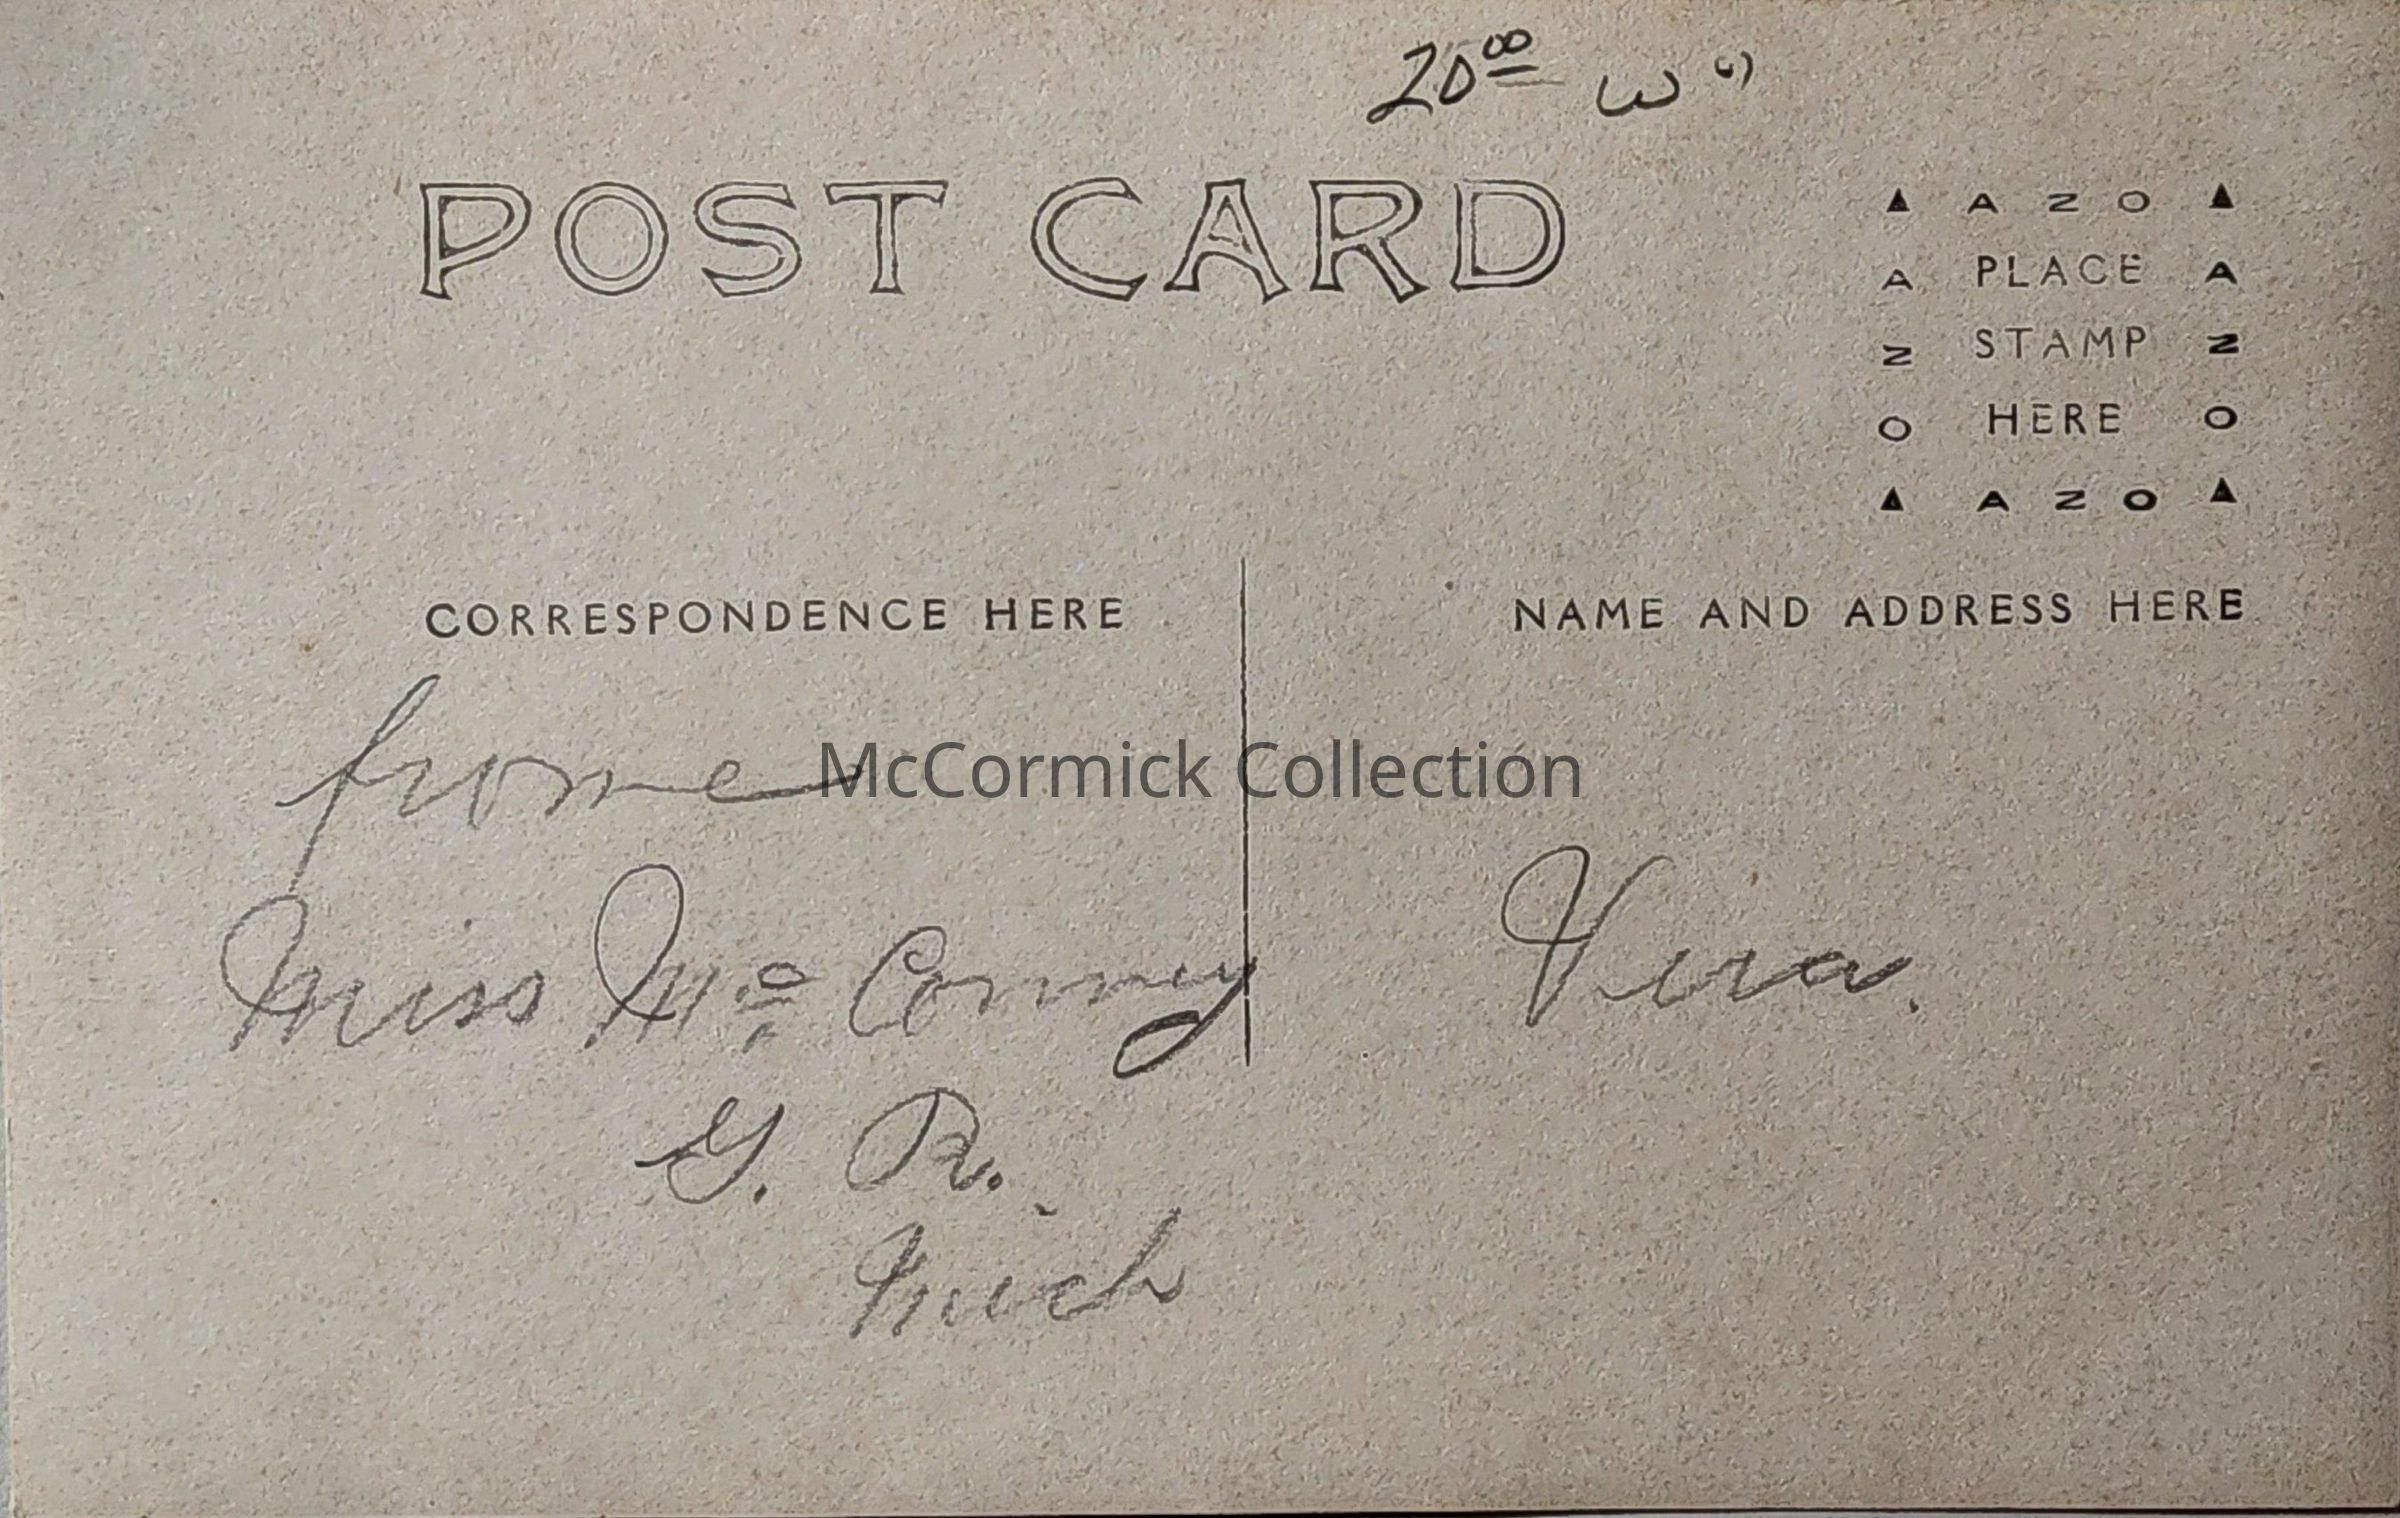 20⁰⁰ W
POST CARD
▲ A Z O ▲
A PLACE A
Z STAMP Z
O HERE O
▲ A Z O ▲
CORRESPONDENCE HERE
NAME AND ADDRESS HERE
from
McCormick Collection
Miss Mc Conney
Vera.
G. R.
Mich